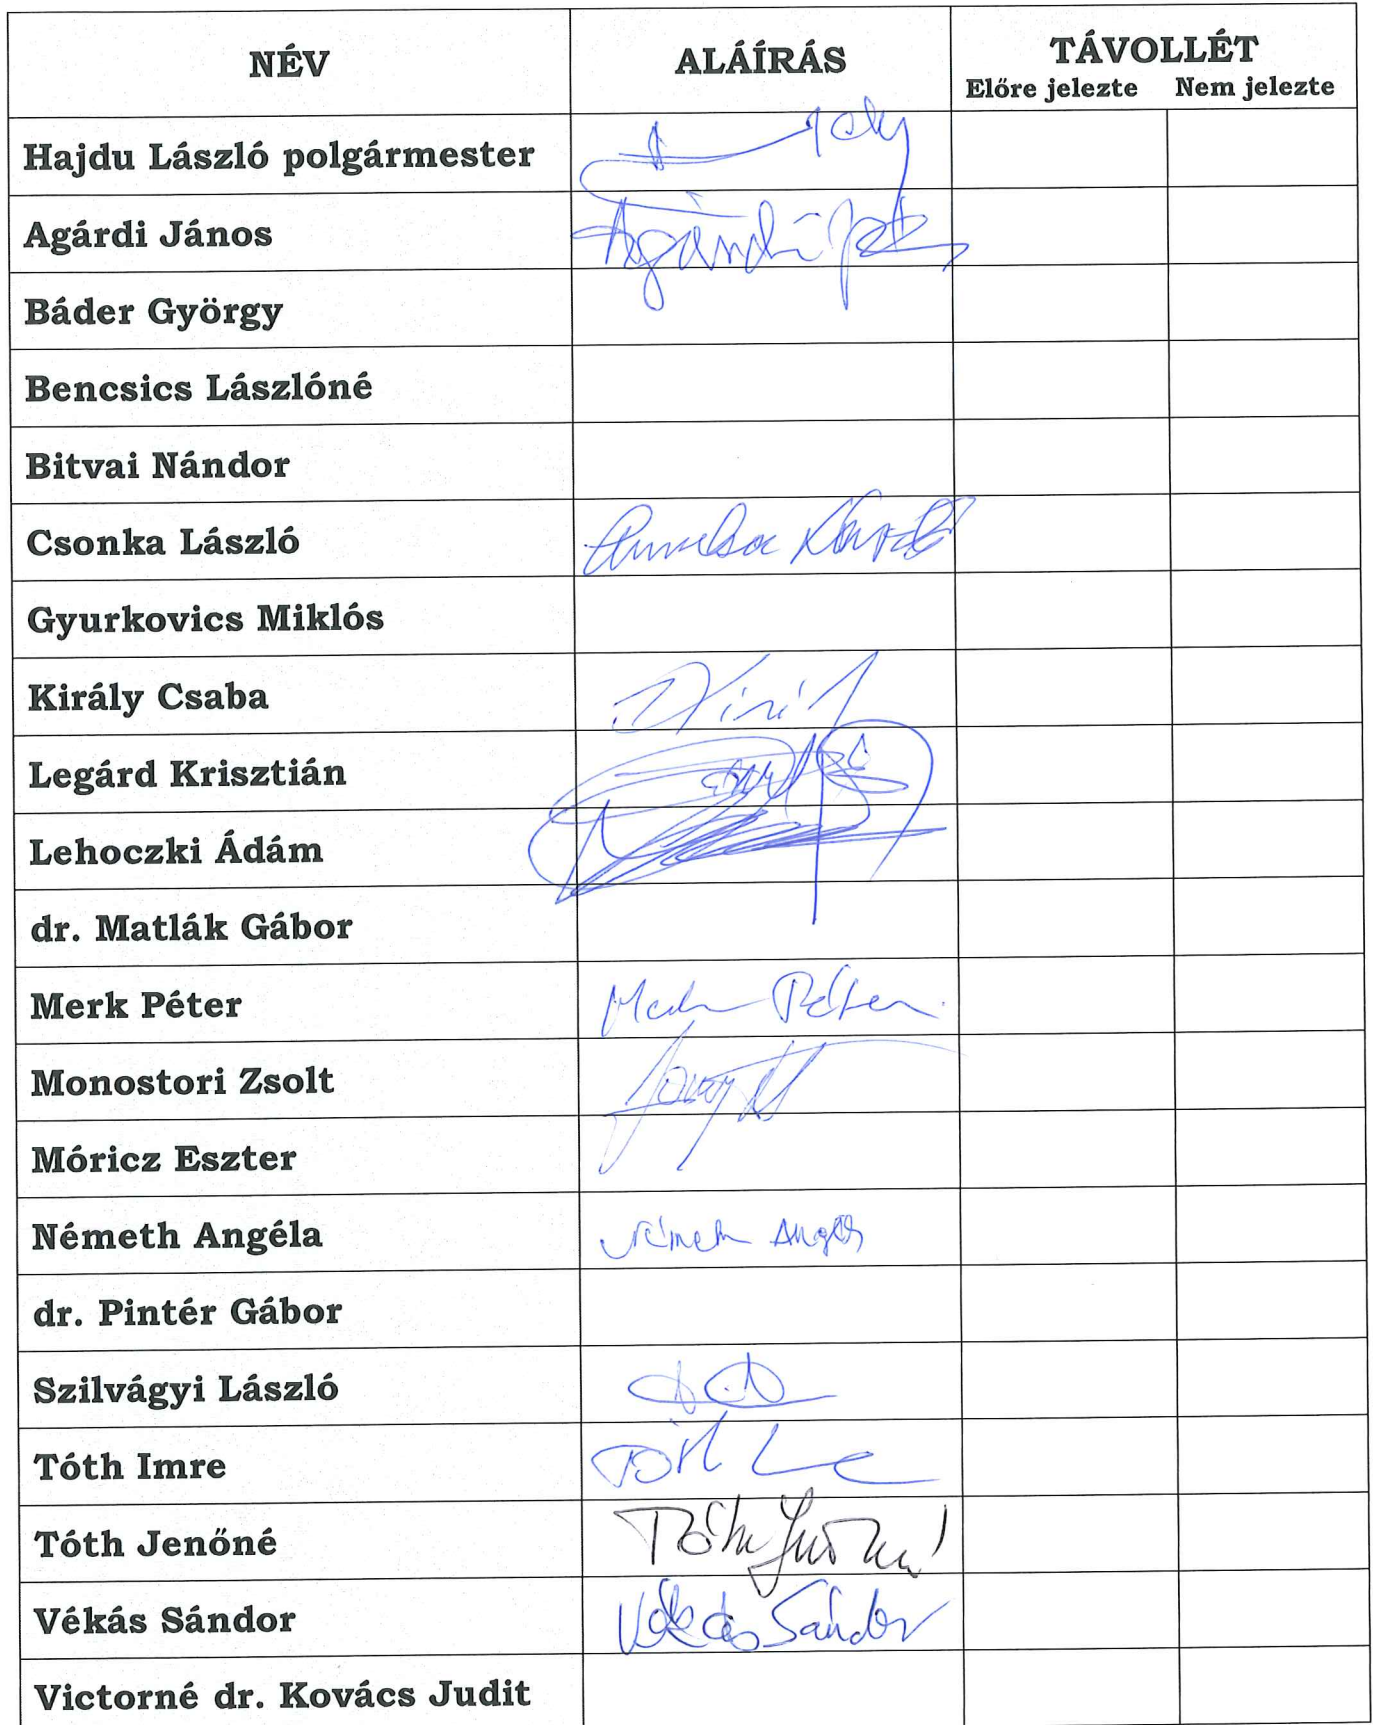 NÉV ALÁÍRÁS TÁVOLLÉT
Előre jelezte Nem jelezte
Hajdu László polgármester
Agárdi János Agárdi
Báder György
Bencsics Lászlóné
Bitvai Nándor
Csonka László
Gyurkovics Miklós
Király Csaba
Legárd Krisztián
Lehoczki Ádám
dr. Matlák Gábor
Merk Péter Merk Péter
Monostori Zsolt
Móricz Eszter
Németh Angéla Németh Angéla
dr. Pintér Gábor
Szilvágyi László
Tóth Imre Tóth
Tóth Jenőné Tóth Jenőné
Vékás Sándor Vékás Sándor
Victorné dr. Kovács Judit